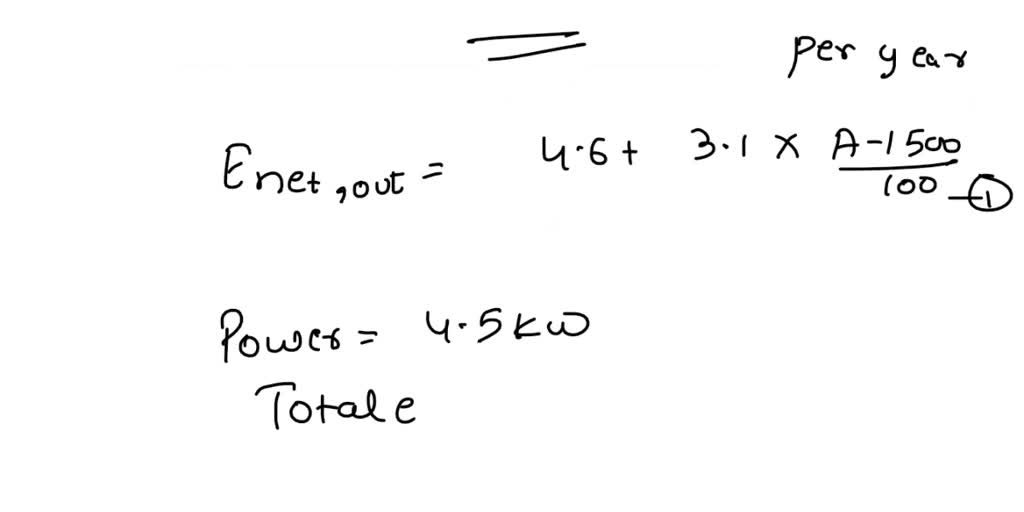 per year
Enet,out = 4.6 + 3.1 × A-1500/100 —①
Power = 4.5kw
Total e